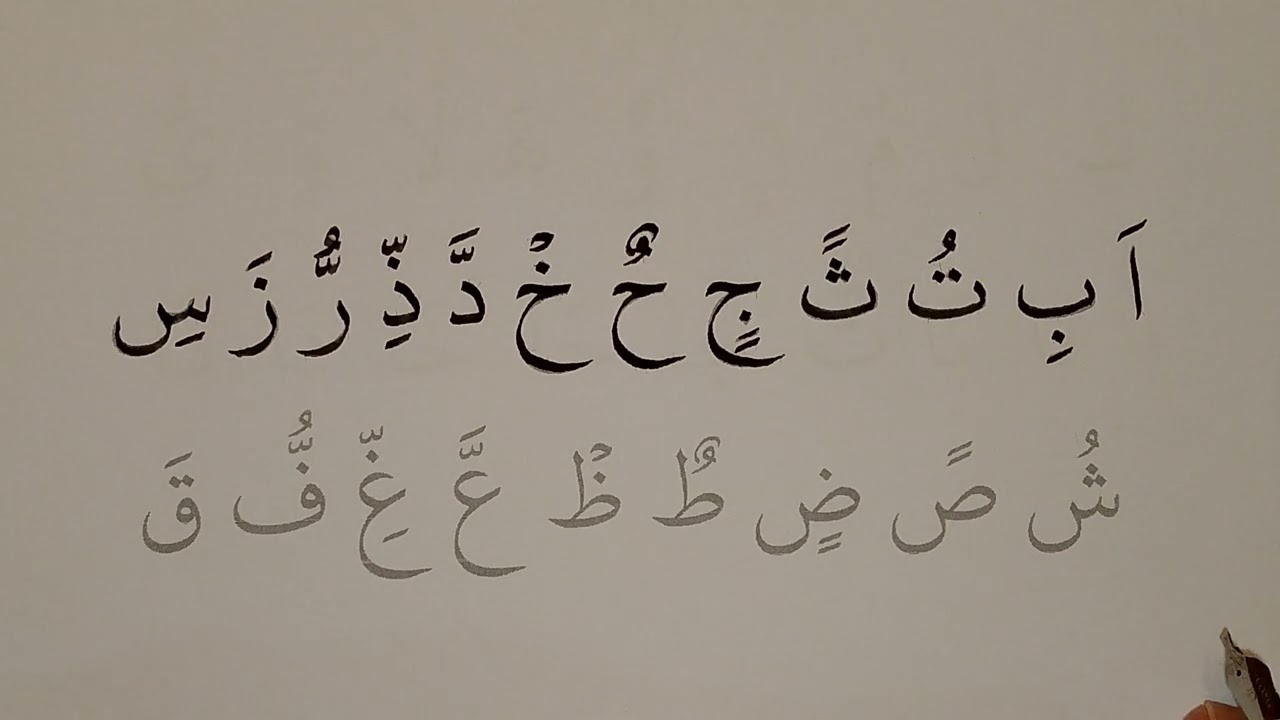 اَ بِ تُ ثً جٍ حٌ خْ دَّ ذِّ رُّ زَ سِ
شُ صً ضٍ طٌ ظْ عَّ غِّ فُّ قَ